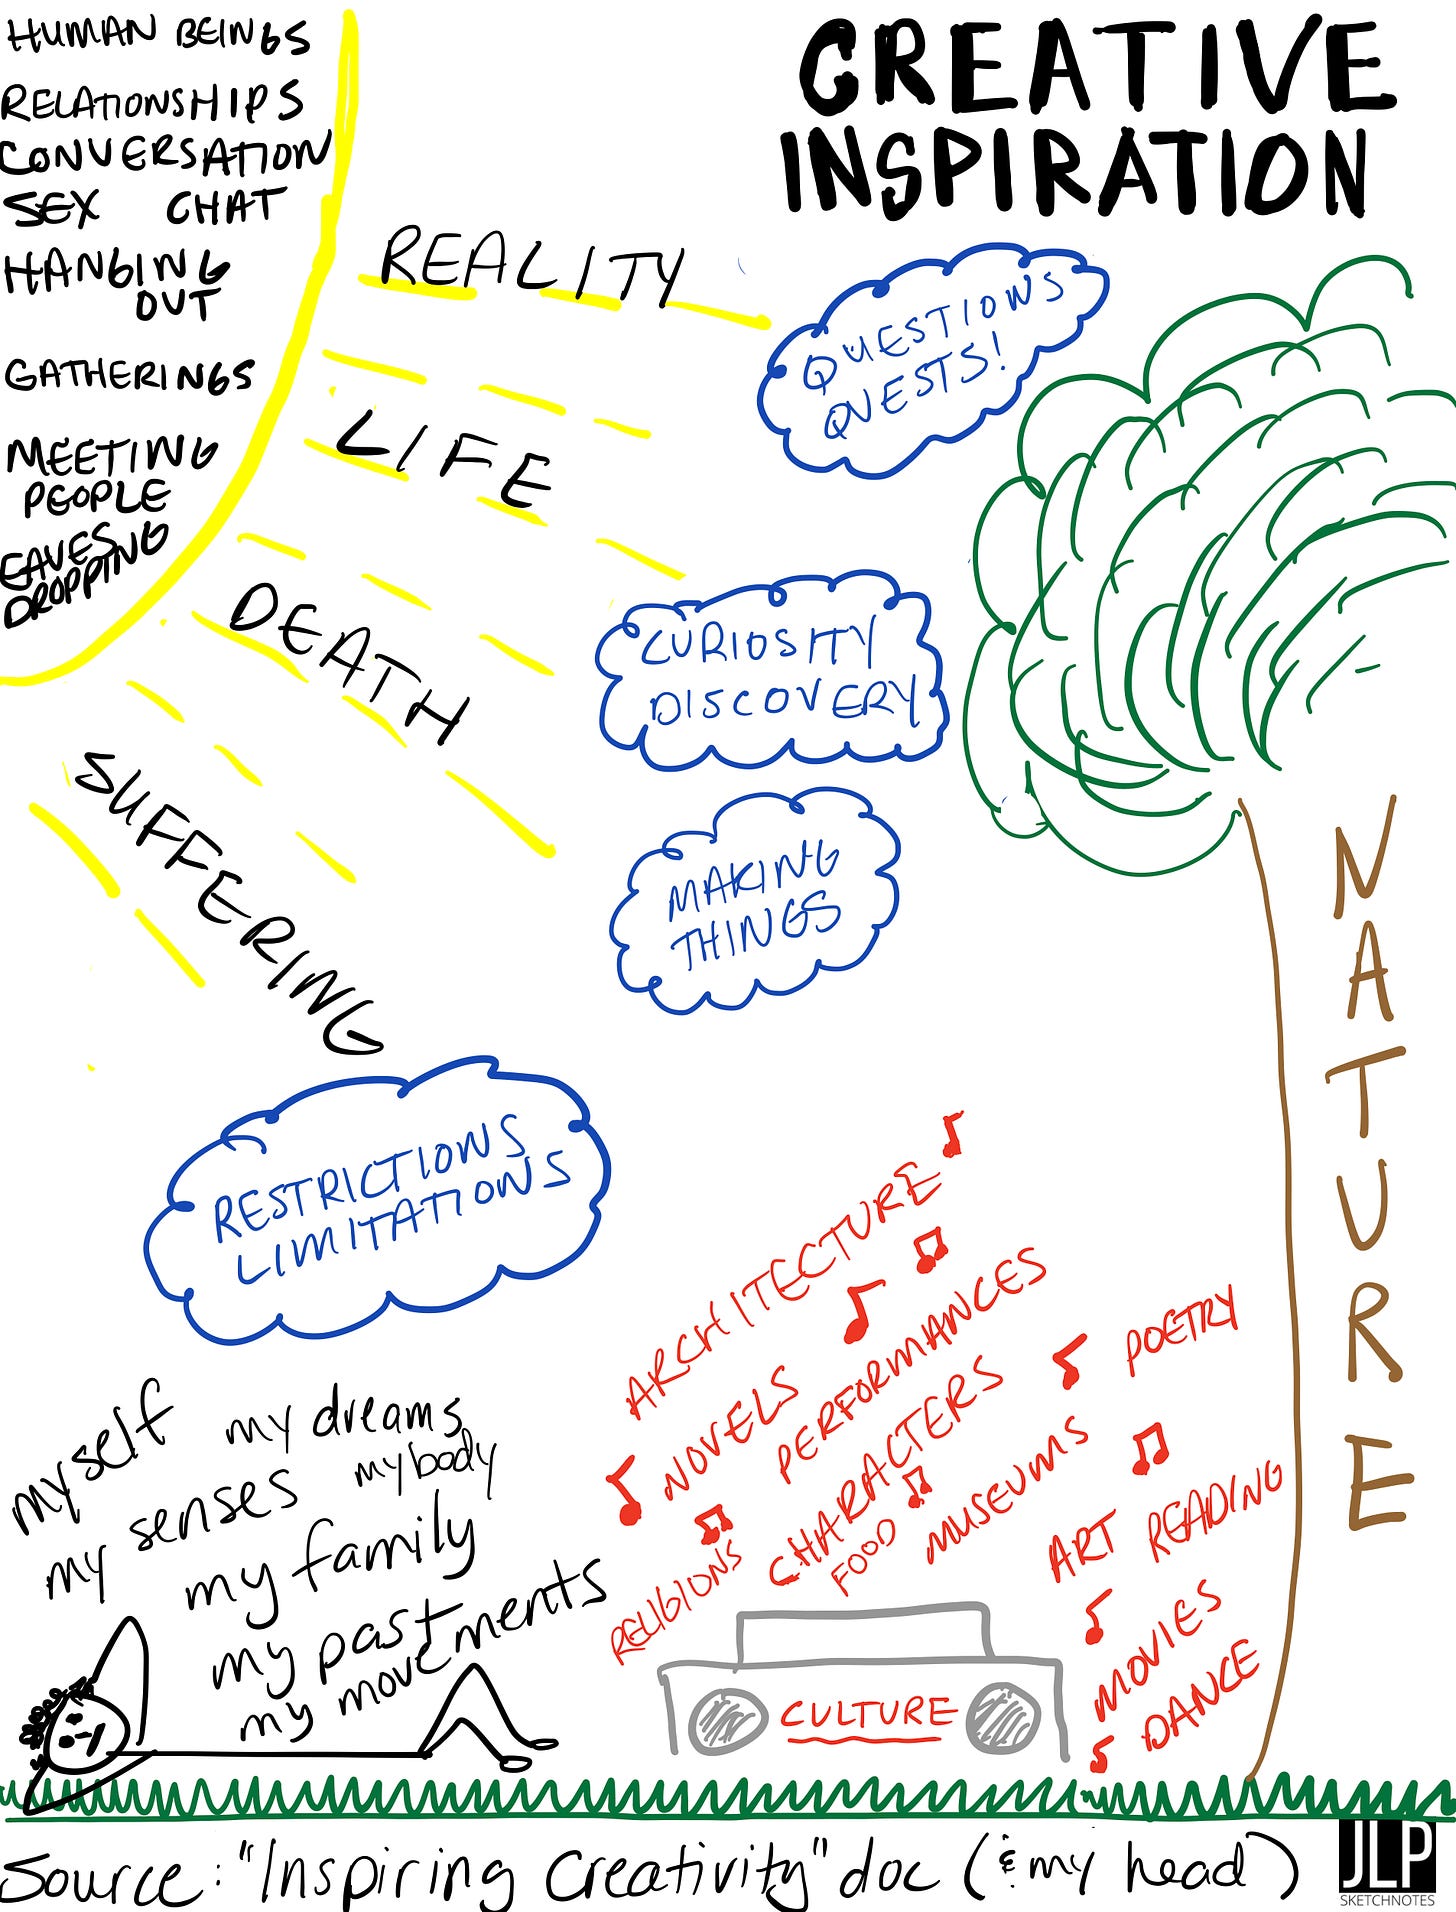 CREATIVE
INSPIRATION
HUMAN BEINGS
RELATIONSHIPS
CONVERSATION
SEX CHAT
HANGING
OUT
GATHERINGS
MEETING
PEOPLE
EAVES
DROPPING
REALITY
LIFE
DEATH
SUFFERING
QUESTIONS
QUESTS!
CURIOSITY
DISCOVERY
MAKING
THINGS
RESTRICTIONS
LIMITATIONS
NATURE
myself
my dreams
my senses
my body
my family
my past
my movements
ARCHITECTURE
NOVELS
PERFORMANCES
POETRY
CHARACTERS
RELIGIONS
FOOD
MUSEUMS
ART
READING
MOVIES
DANCE
CULTURE
Source: "Inspiring Creativity" doc (& my head)
JLP
SKETCHNOTES